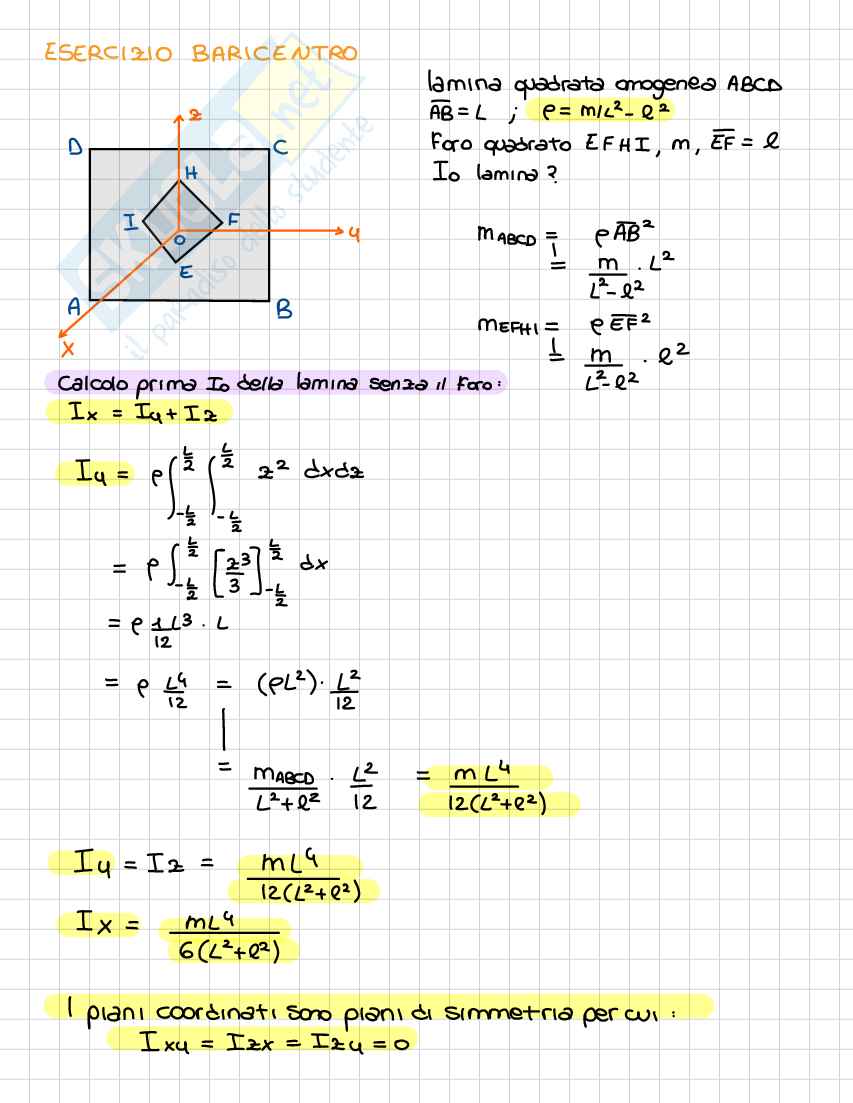 ESERCIZIO BARICENTRO
lamina quadrata omogenea ABCD
AB = L ; ρ = m/L² - ℓ²
Foro quadrato EFHI, m, EF = ℓ
Io lamina?
z
D
C
H
I
F
y
O
E
A
B
x
skuola.net
il paradiso dello studente
mABCD = ρ AB²
= m/(L² - ℓ²) · L²
mEFHI = ρ EF²
= m/(L² - ℓ²) · ℓ²
Calcolo prima Io della lamina senza il foro:
Ix = Iy + Iz
Iy = ρ ∫_{-L/2}^{L/2} ∫_{-L/2}^{L/2} z² dxdz
= ρ ∫_{-L/2}^{L/2} [z³/3]_{-L/2}^{L/2} dx
= ρ 1L³/12 · L
= ρ L⁴/12 = (ρL²) · L²/12
= mABCD/(L² + ℓ²) · L²/12 = mL⁴/12(L² + ℓ²)
Iy = Iz = mL⁴/12(L² + ℓ²)
Ix = mL⁴/6(L² + ℓ²)
I piani coordinati sono piani di simmetria per cui:
Ixy = Izx = Izy = 0